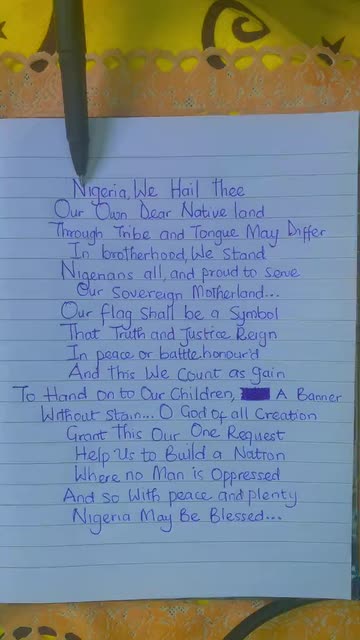 Nigeria, We Hail thee
Our Own Dear Native land
Through Tribe and Tongue May Differ
In brotherhood, We Stand
Nigerians all, and proud to serve
Our Sovereign Motherland...
Our flag Shall be a Symbol
That Truth and Justice Reign
In peace or battle honour'd
And this We Count as gain
To Hand on to Our Children, A Banner
Without Stain... O God of all Creation
Grant This Our One Request
Help Us to Build a Nation
Where no Man is Oppressed
And so With peace and plenty
Nigeria May Be Blessed...